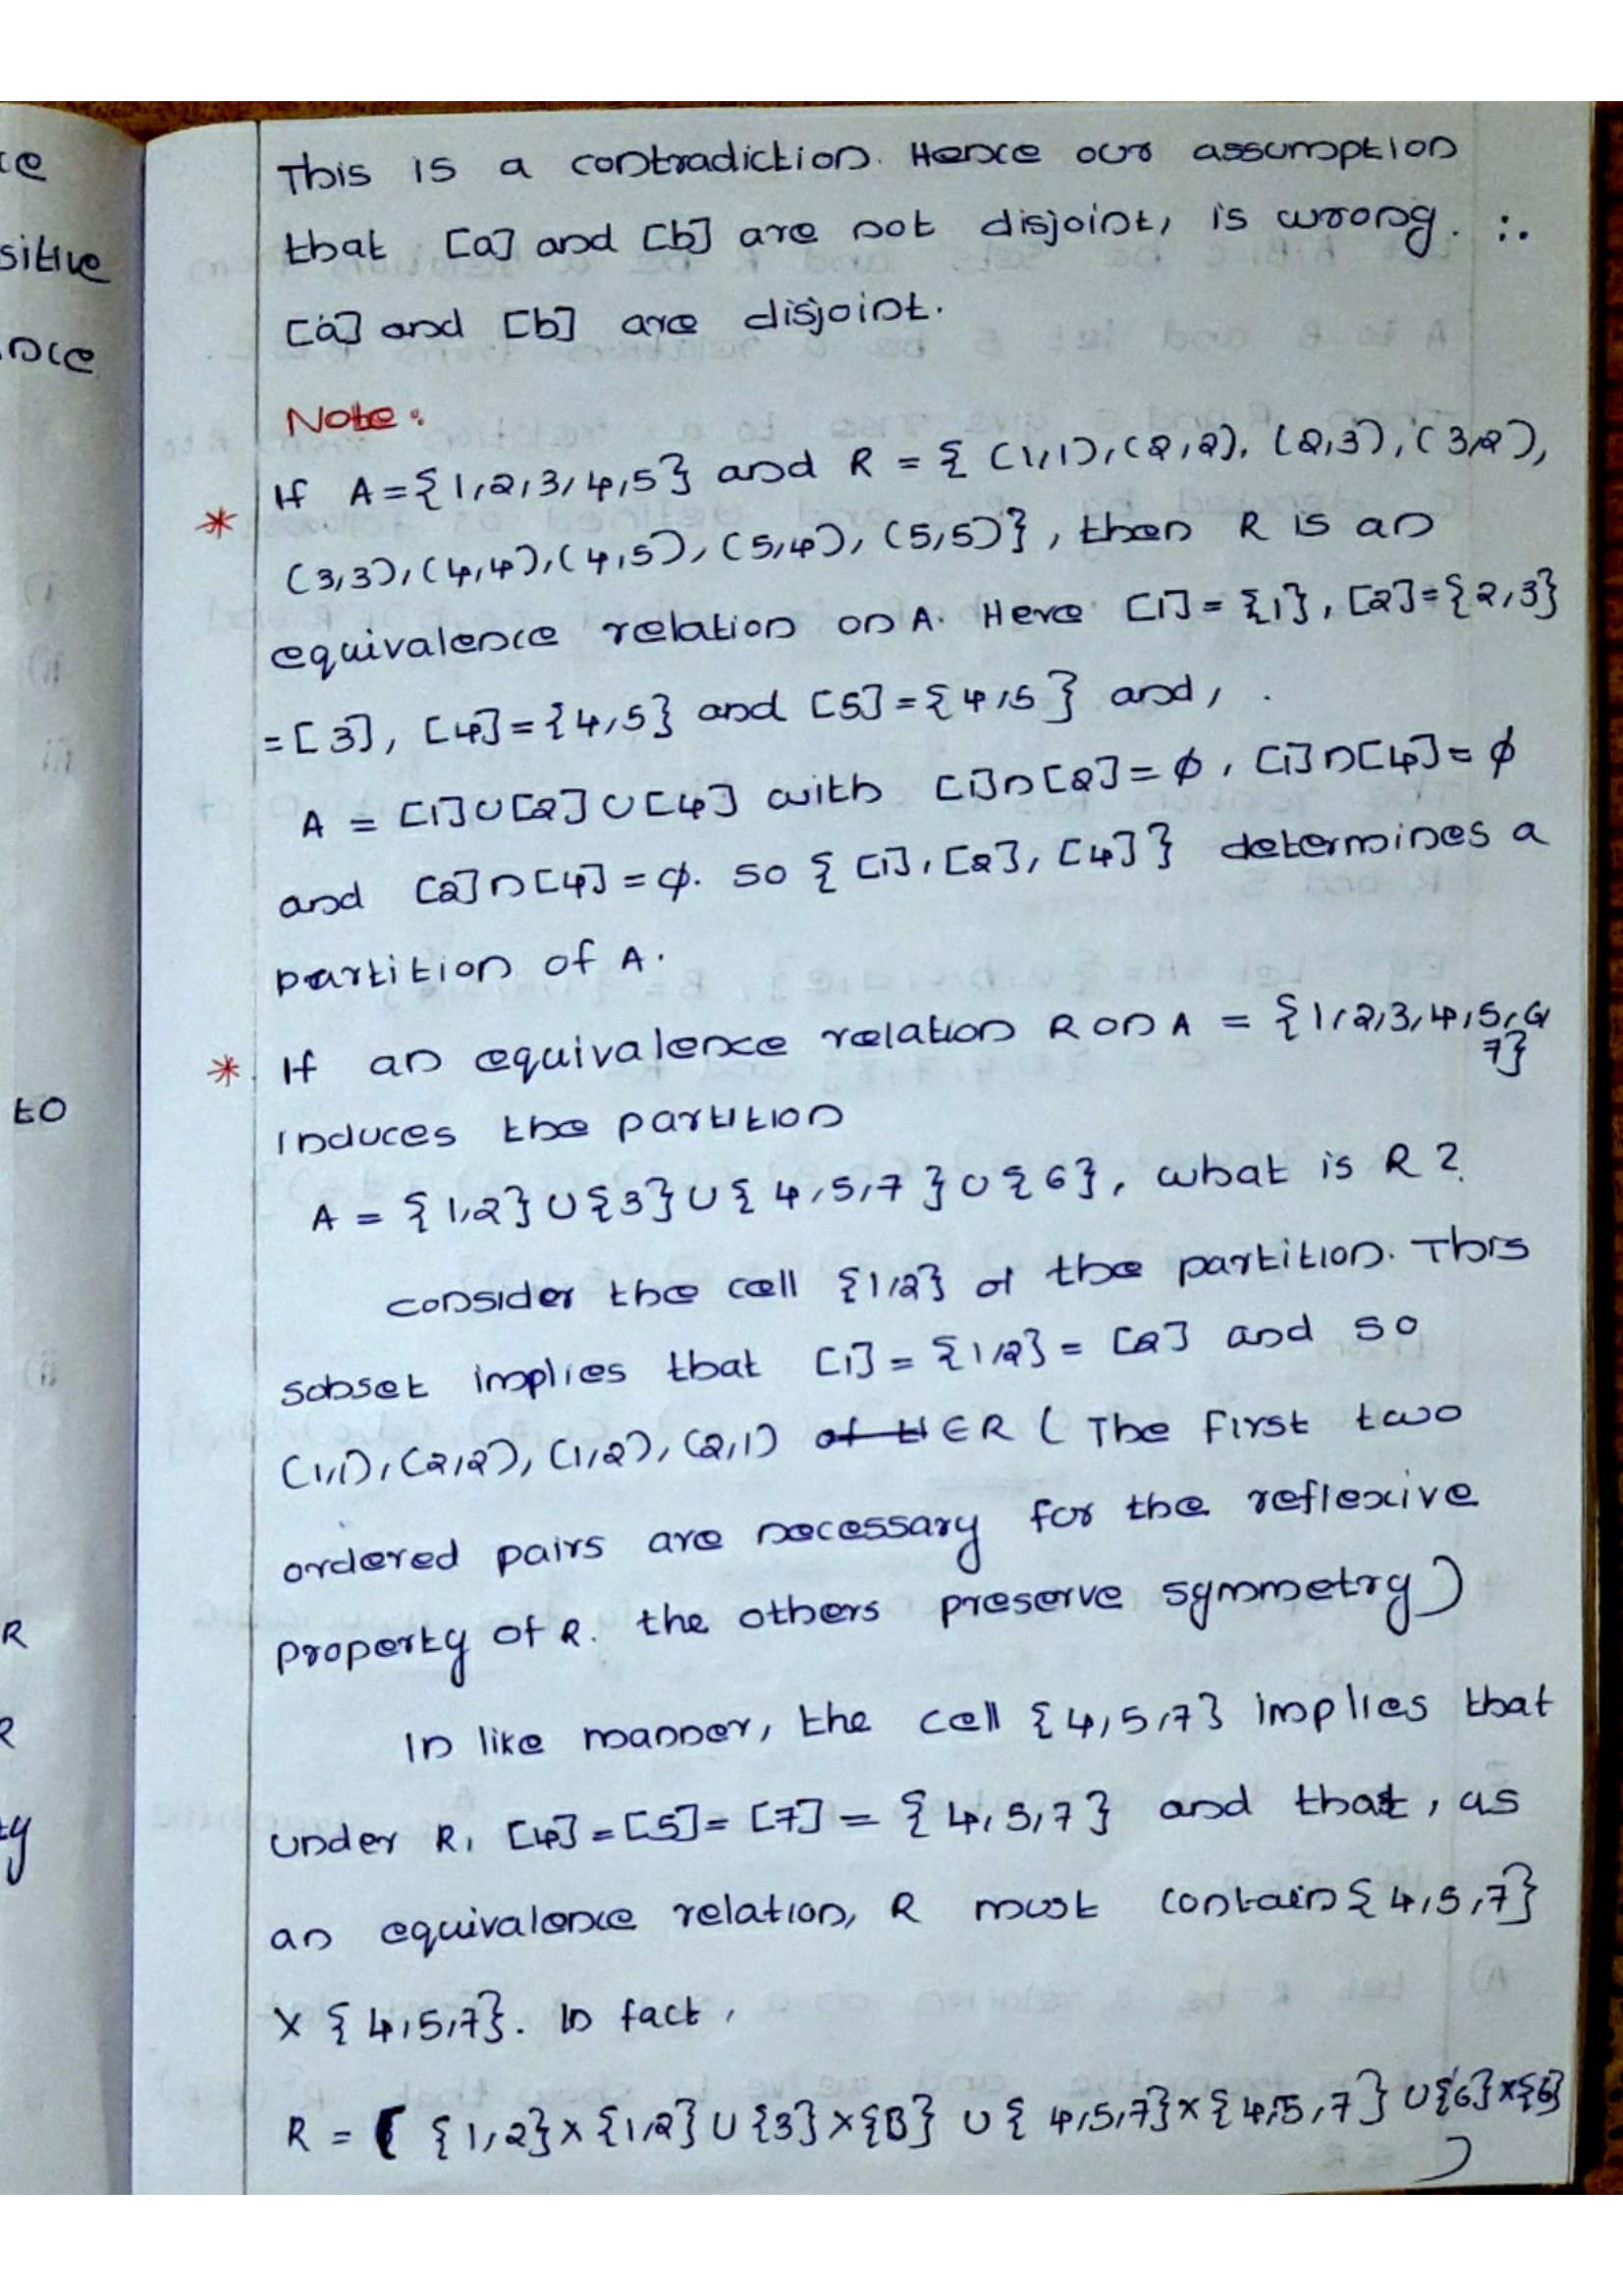 ce
sitive
nce
to
R
R
ty
This is a contradiction. Hence our assumption
that [a] and [b] are not disjoint, is wrong. ∴
[a] and [b] are disjoint.
Note:
* If A={1,2,3,4,5} and R = { (1,1),(2,2), (2,3),(3,2),
(3,3),(4,4),(4,5),(5,4),(5,5)}, then R is an
equivalence relation on A. Here [1] = {1}, [2]={2,3}
=[3], [4]={4,5} and [5]={4,5} and,
A = [1]∪[2]∪[4] with [1]∩[2]=φ, [1]∩[4]=φ
and [2]∩[4]=φ. so { [1],[2],[4]} determines a
partition of A.
* If an equivalence relation R on A = {1,2,3,4,5,6,
7}
induces the partition
A = {1,2}∪{3}∪{4,5,7}∪{6}, what is R?
consider the cell {1,2} of the partition. This
sobset implies that [1] = {1,2} = [2] and so
(1,1),(2,2),(1,2),(2,1) ∈R ( The first two
ordered pairs are necessary for the reflexive
property of R. the others preserve symmetry)
In like manner, the cell {4,5,7} implies that
under R, [4]=[5]=[7] = {4,5,7} and that, as
an equivalence relation, R must contain {4,5,7}
X {4,5,7}. In fact,
R = ( {1,2}×{1,2}∪{3}×{3} ∪ {4,5,7}×{4,5,7} ∪{6}×{6}
)